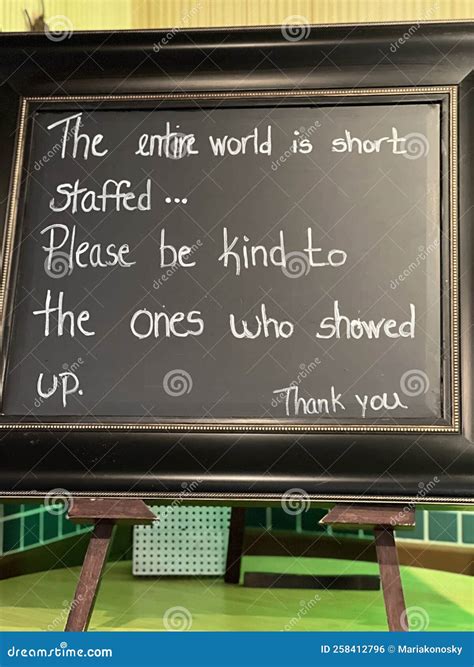 The entire world is short
staffed ...
Please be kind to
the ones who showed
up.
Thank you
dreamstime.com
ID 258412796 © Mariakonosky